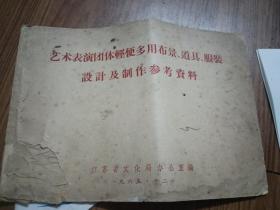 艺术表演团体轻便多用布景、道具、服装
設計及制作参考資料
江苏省文化局办公室編
一九六五·十二